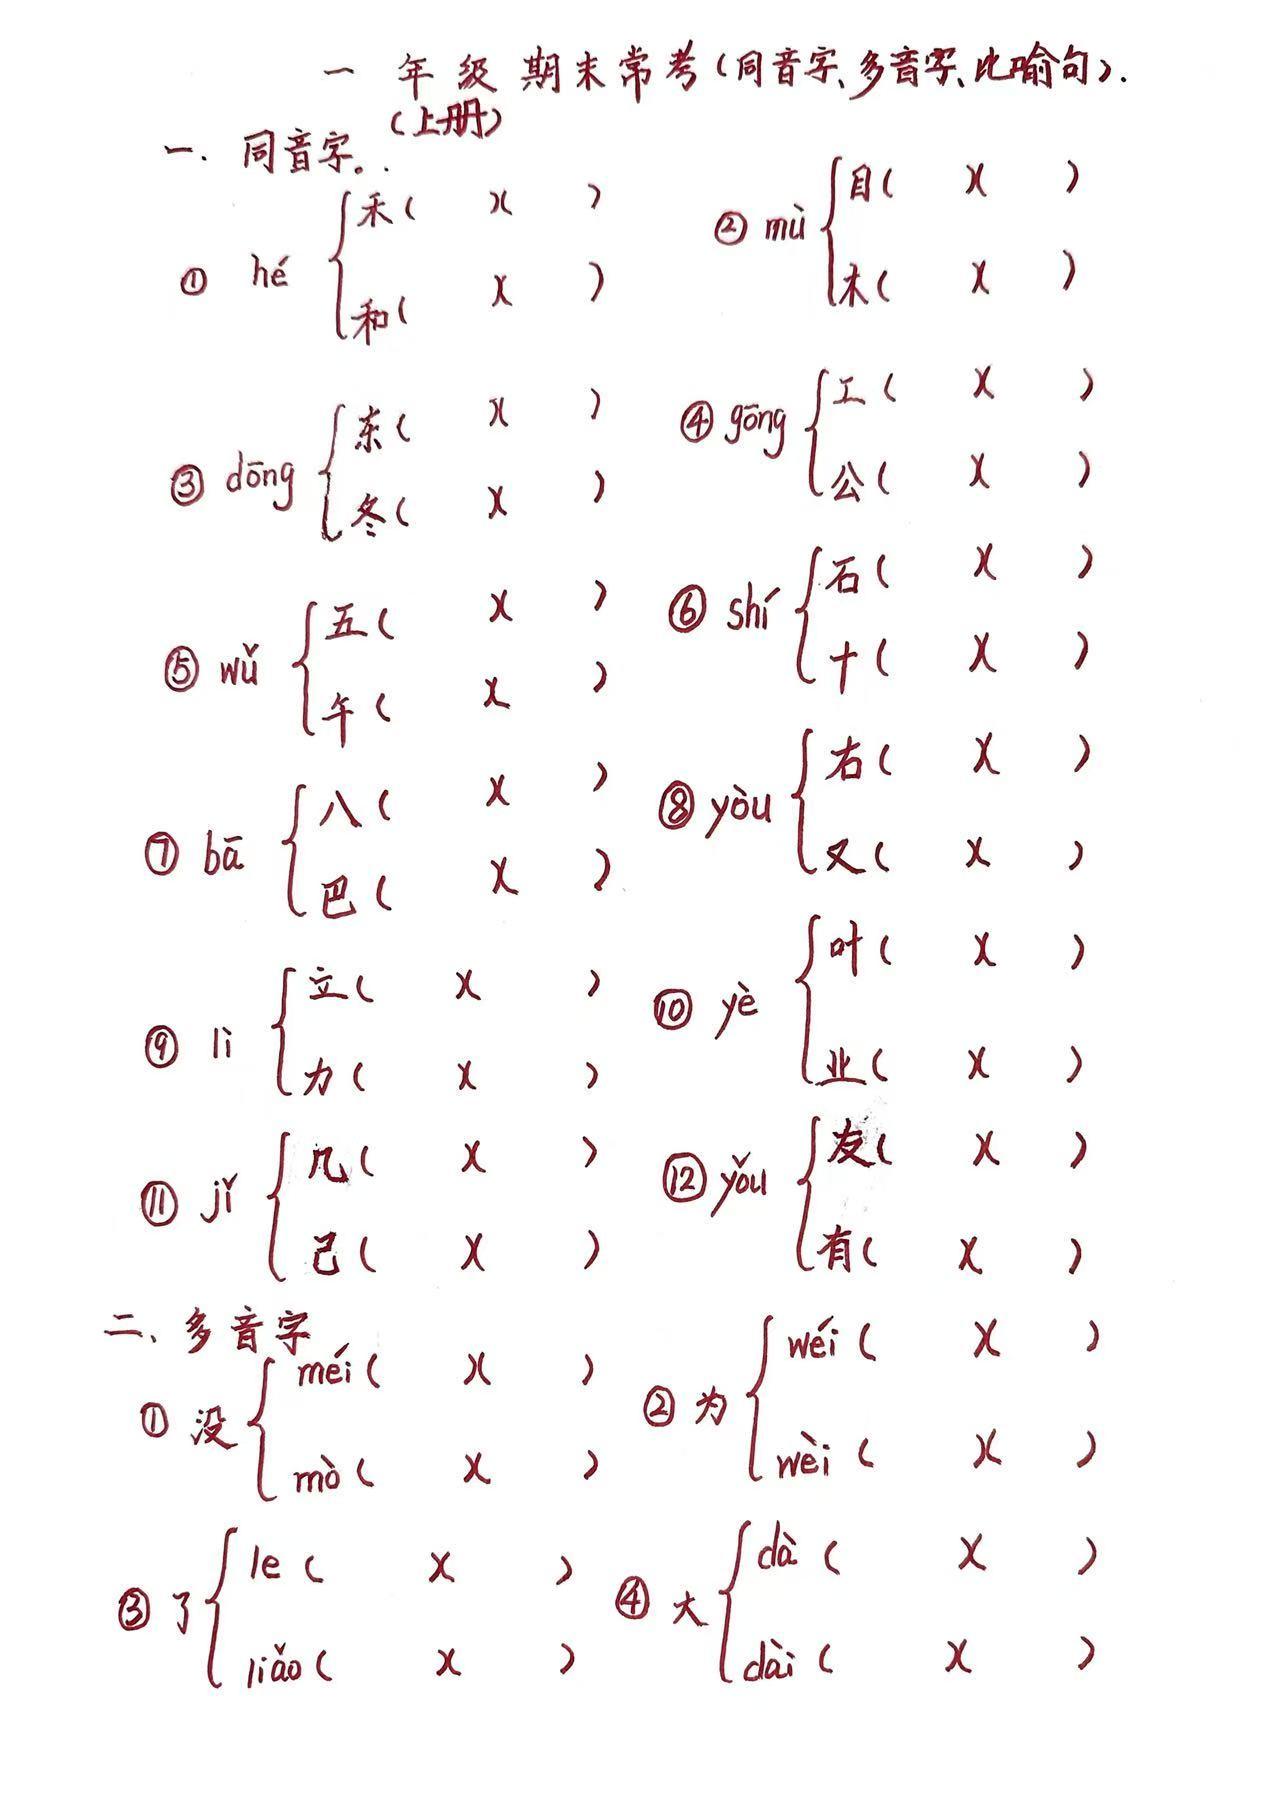 一年级期末常考(同音字、多音字、比喻句).
(上册)
一. 同音字。.
① hé 禾( X )
和( X )
② mù 目( X )
木( X )
③ dōng 东( X )
冬( X )
④ gōng 工( X )
公( X )
⑤ wǔ 五( X )
午( X )
⑥ shí 石( X )
十( X )
⑦ bā 八( X )
巴( X )
⑧ yòu 右( X )
又( X )
⑨ lì 立( X )
力( X )
⑩ yè 叶( X )
业( X )
⑪ jǐ 几( X )
己( X )
⑫ yǒu 友( X )
有( X )
二、多音字
① 没 méi( X )
mò( X )
② 为 wéi( X )
wèi( X )
③ 了 le( X )
liǎo( X )
④ 大 dà( X )
dài( X )